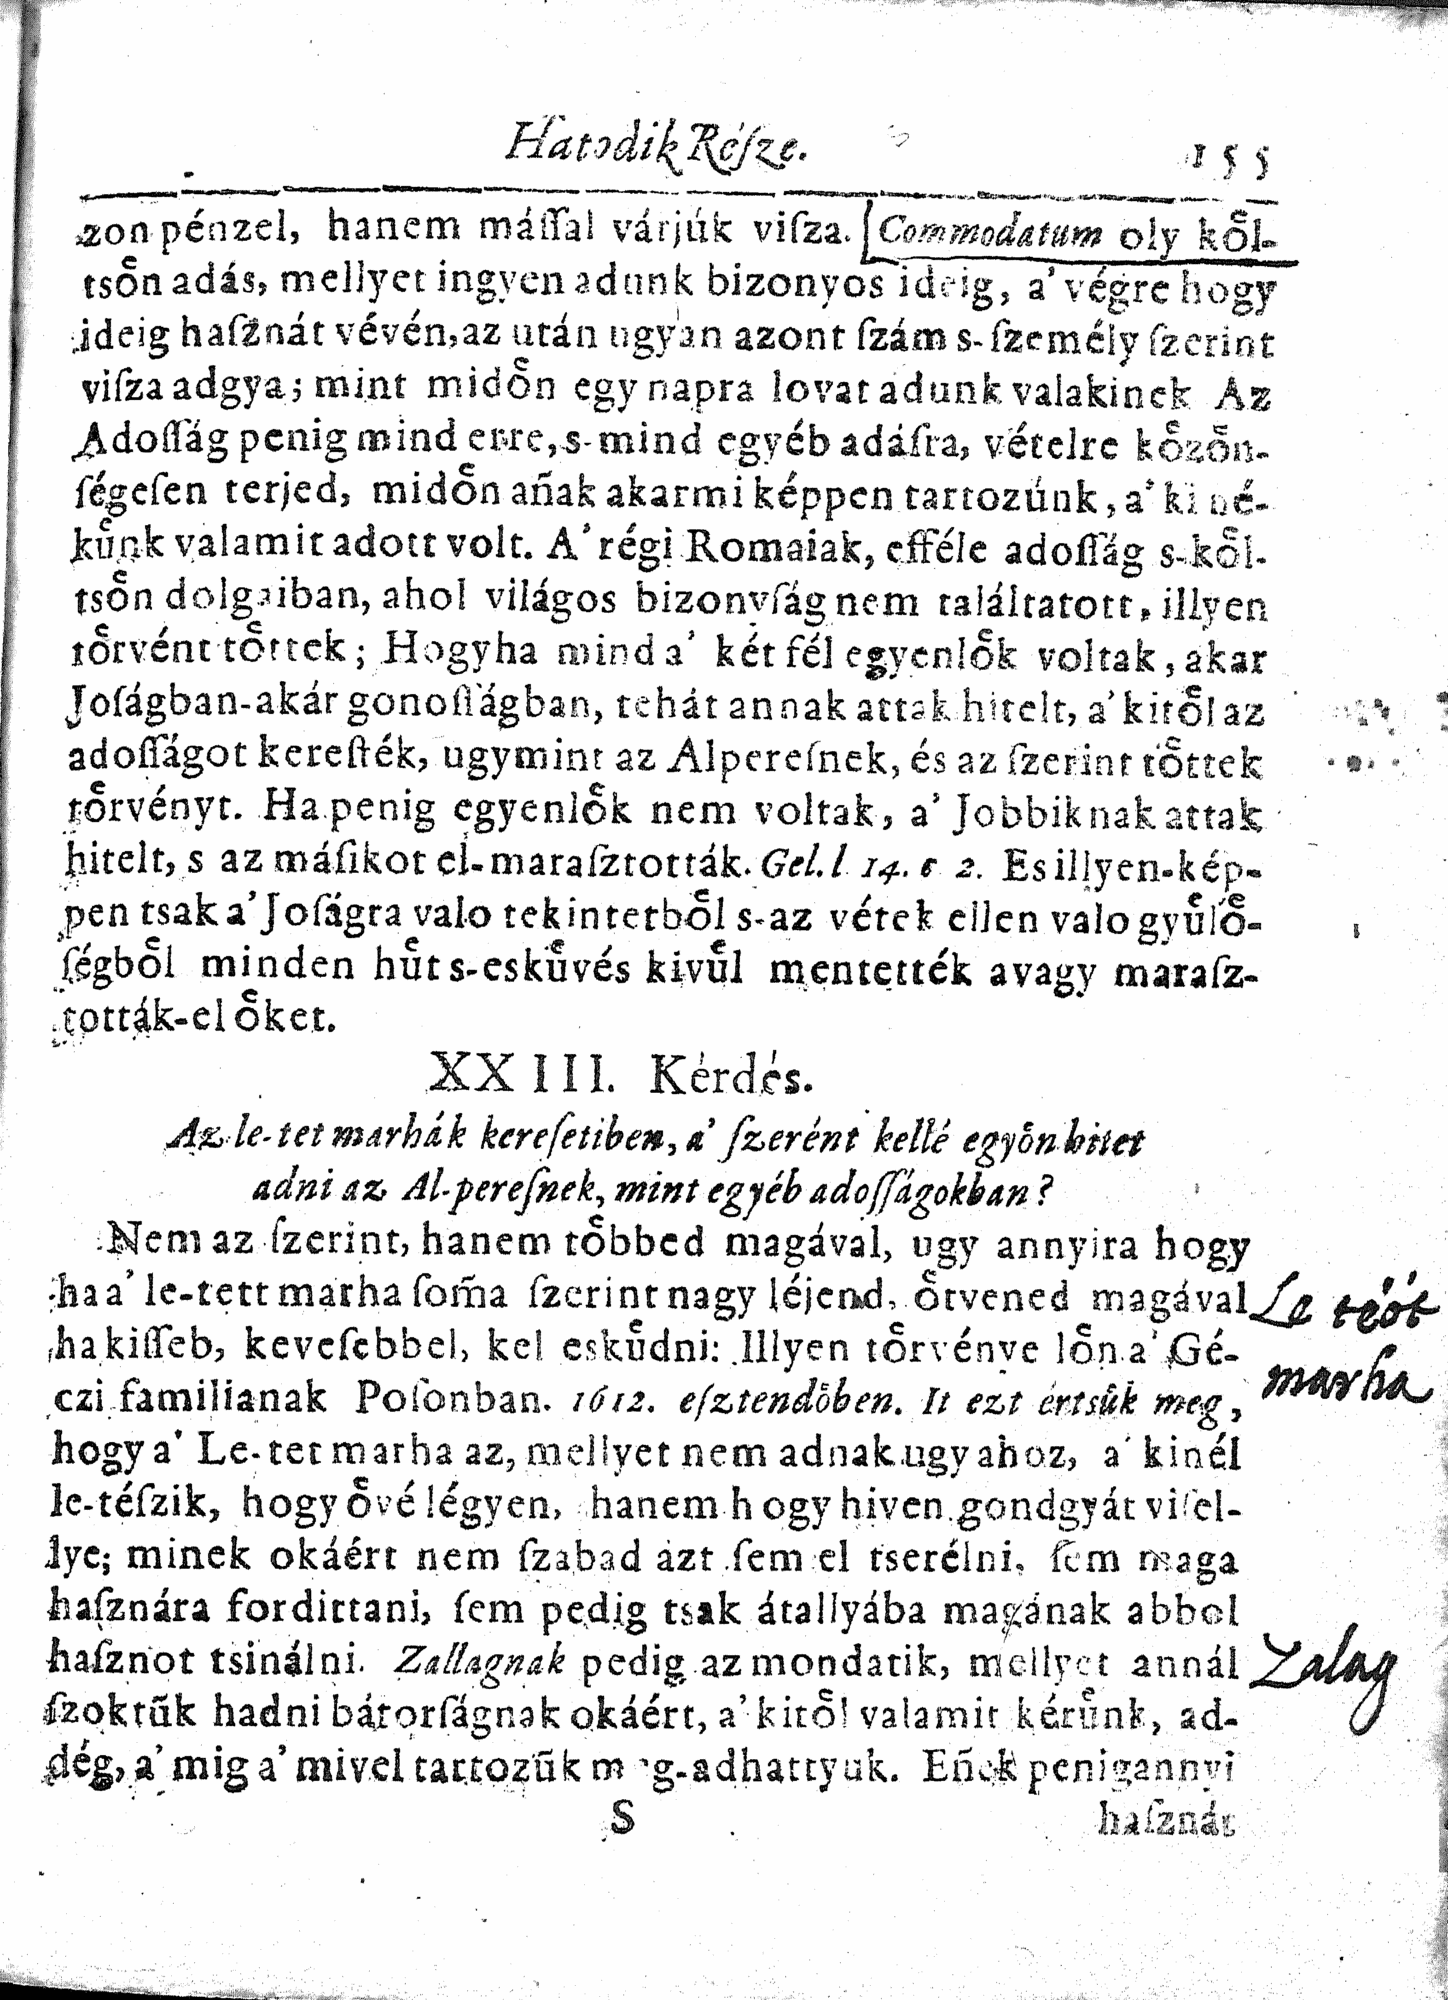 Hatodik Réſze. 155
zon pénzel, hanem máſſal várjúk viſza. Commodatum oly koͤl-
tsoͤn adás, mellyet ingyen adunk bizonyos ideig, a' végre hogy
ideig haſznát vévén, az után ugyan azont ſzám s-ſzemély ſzerint
viſza adgya; mint midoͤn egy napra lovat adunk valakinek Az
Adoſſág penig mind erre, s-mind egyéb adáſra, vételre koͤzoͤn-
ſégeſen terjed, midoͤn añak akarmi képpen tartozúnk, a' ki né-
kuͤnk valamit adott volt. A' régi Romaiak, efféle adoſſág s-koͤl-
tsoͤn dolgaiban, ahol világos bizonyſág nem találtatott, illyen
toͤrvént toͤttek; Hogyha mind a' két fél egyenloͤk voltak, akar
Joſágban-akár gonoſſágban, tehát annak attak hitelt, a' kitoͤl az
adoſſágot kereſték, ugymint az Alpereſnek, és az ſzerint toͤttek
toͤrvényt. Ha penig egyenloͤk nem voltak, a' Jobbiknak attak
hitelt, s az máſikot el-maraſztották. Gel. l 14. c 2. Es illyen-kép-
pen tsak a' Joſágra valo tekintetboͤl s-az vétek ellen valo gyuͤloͤ-
ſégboͤl minden huͤt s-eskuͤvés kivuͤl mentették avagy maraſz-
tották-el oͤket.
XXIII. Kérdés.
Az le-tet marhák kereſetiben, a' ſzerént kellé egyoͤn hitet
adni az Al-pereſnek, mint egyéb adoſſágokban?
Nem az ſzerint, hanem toͤbbed magával, ugy annyira hogy
ha a' le-tett marha ſom̃a ſzerint nagy léjend, oͤtvened magával
ha kiſſeb, keveſebbel, kel eskuͤdni: Illyen toͤrvénye loͤn a' Gé-
czi familianak Poſonban. 1612. eſztendoͤben. It ezt értsuͤk meg,
hogy a' Le-tet marha az, mellyet nem adnak ugy ahoz, a' kinél
le-téſzik, hogy oͤvé légyen, hanem hogy hiven gondgyát viſel-
lye; minek okáért nem ſzabad azt ſem el tserélni, ſem maga
haſznára fordittani, ſem pedig tsak átallyába magának abbol
haſznot tsinálni. Zallagnak pedig az mondatik, mellyet annál
ſzoktũk hadni bátorſágnak okáért, a' kitoͤl valamit kéruͤnk, ad-
dég, a' mig a' mivel tartozũk meg-adhattyuk. Eñek penig annyi
S haſznát
Le teót
marha
Zalag